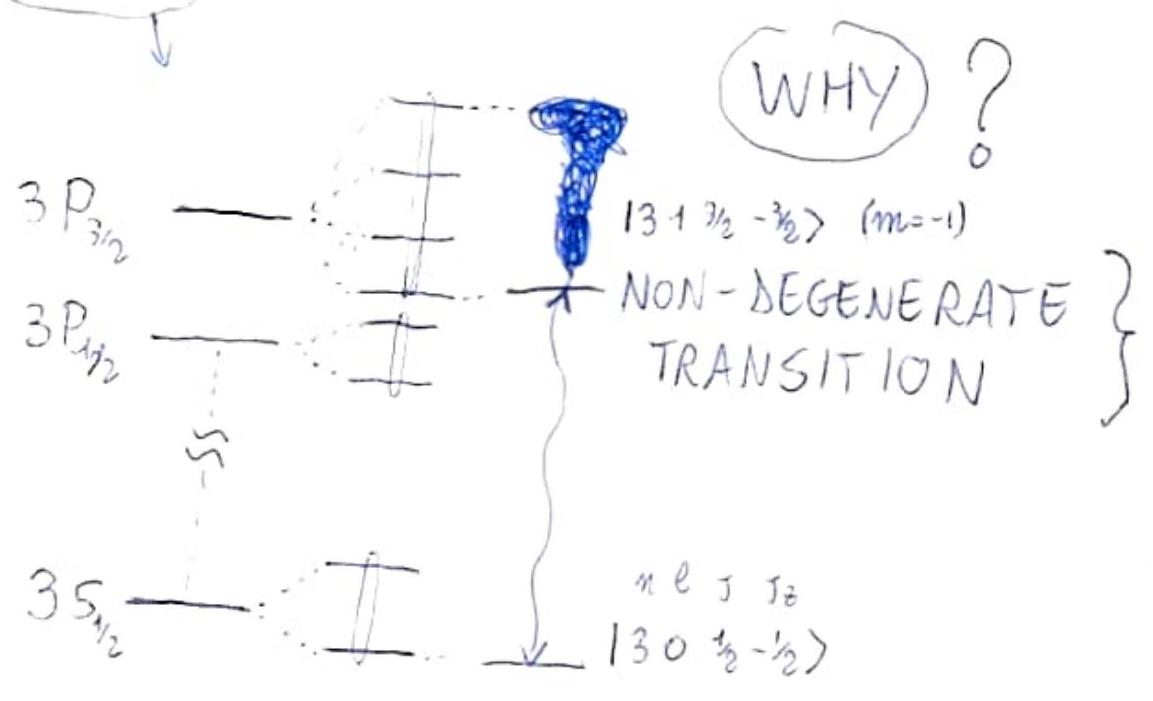 WHY ?
3P3/2
|3 1 3/2 -3/2> (m=-1)
NON-DEGENERATE
TRANSITION
3P1/2
3S1/2
n l J Jz
|3 0 1/2 -1/2>